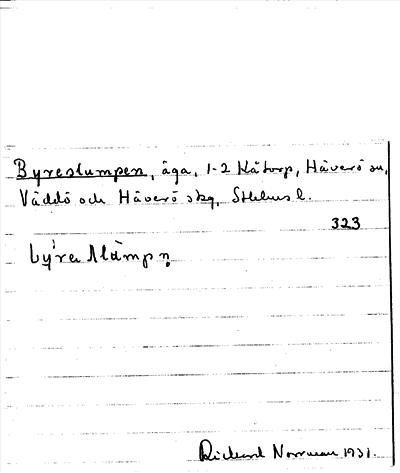 Byreslumpen, äga, 1-2 Kåtorp, Häverö sn,
Väddö och Häverö skg, Sthlms l.
323
Richard Norrman 1931.